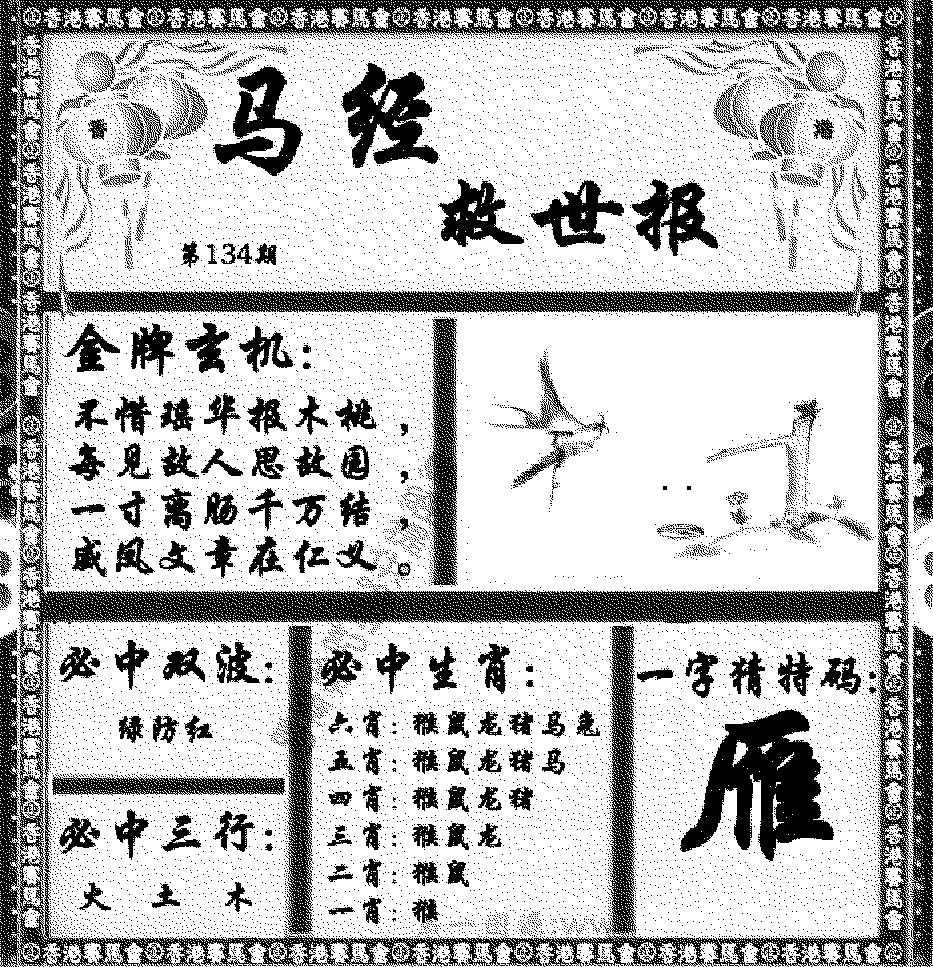 香港賽馬會香港賽馬會香港賽馬會香港賽馬會香港賽馬會香港賽馬會香港賽馬會
香
港
马经
救世报
第134期
金牌玄机:
不惜瑶华报木桃，
每见故人思故园，
一寸离肠千万结，
威凤文章在仁义。
必中双波:
绿防红
必中三行:
火 土 木
必中生肖:
六肖: 猴鼠龙猪马兔
五肖: 猴鼠龙猪马
四肖: 猴鼠龙猪
三肖: 猴鼠龙
二肖: 猴鼠
一肖: 猴
一字猜特码:
雁
香港賽馬會香港賽馬會香港賽馬會香港賽馬會香港賽馬會香港賽馬會香港賽馬會